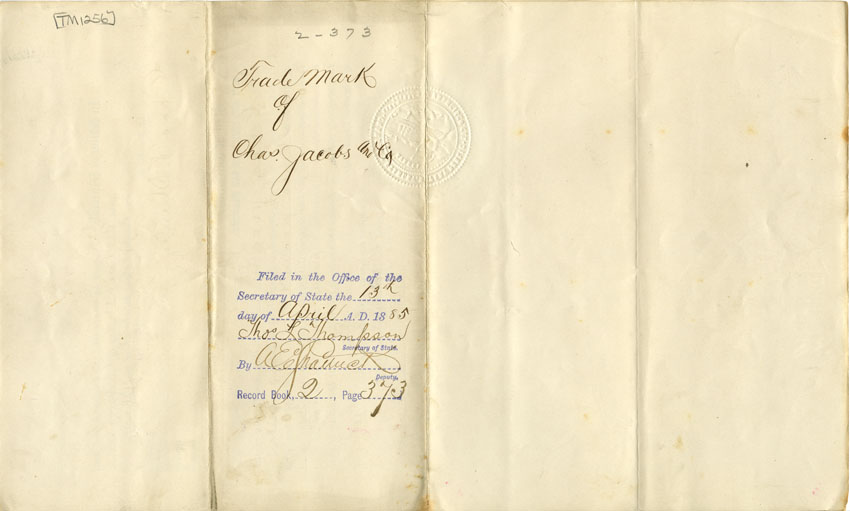 [TM1256]
2-373
Trade Mark
of
Chas. Jacobs and Co
Filed in the Office of the
Secretary of State the 13th
day of April A. D. 1885
Thos L. Thompson
Secretary of State.
By A E Shattuck
Deputy.
Record Book, 2, Page 373